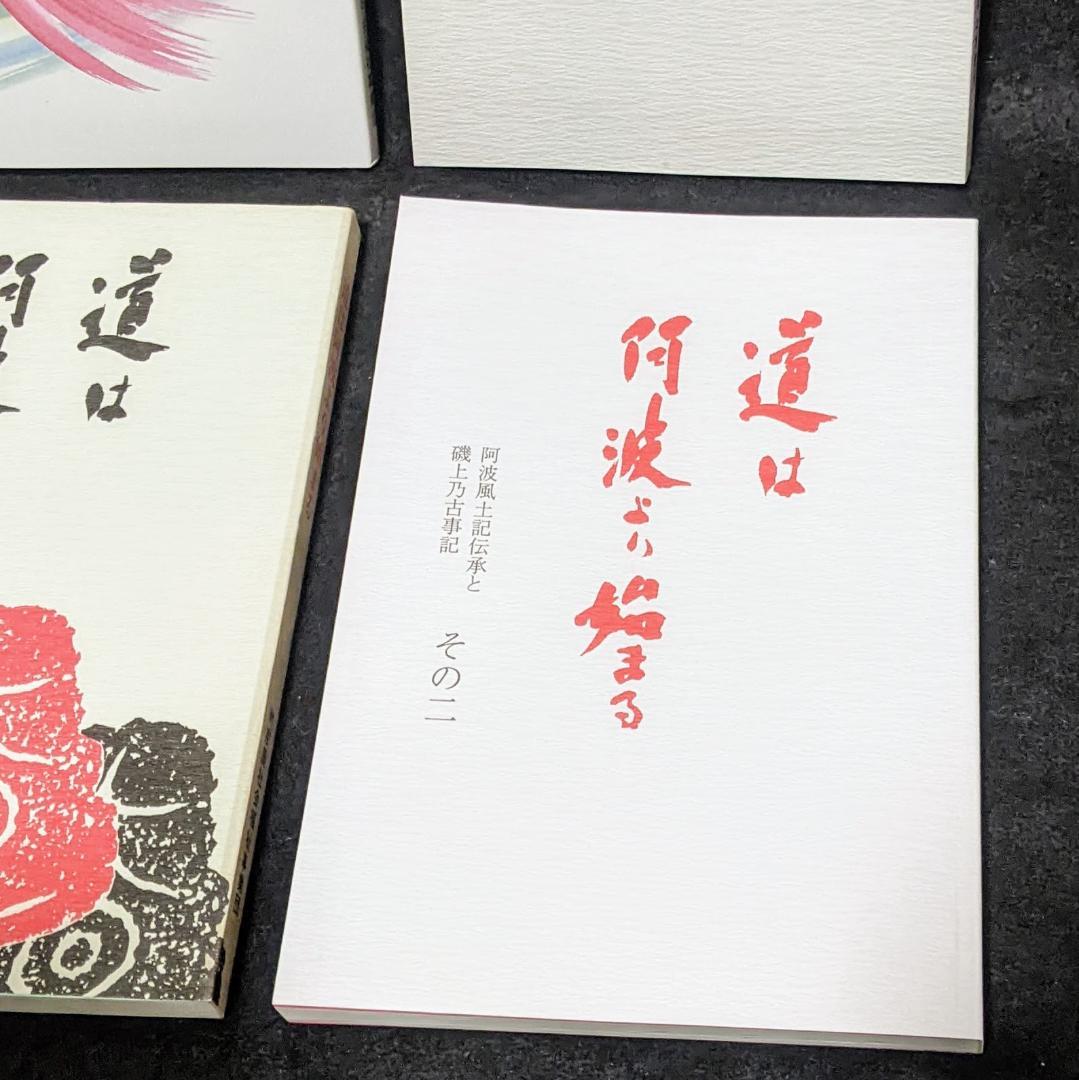 道は
阿波より始まる
阿波風土記伝承と
磯上乃古事記
その二
道は
阿波